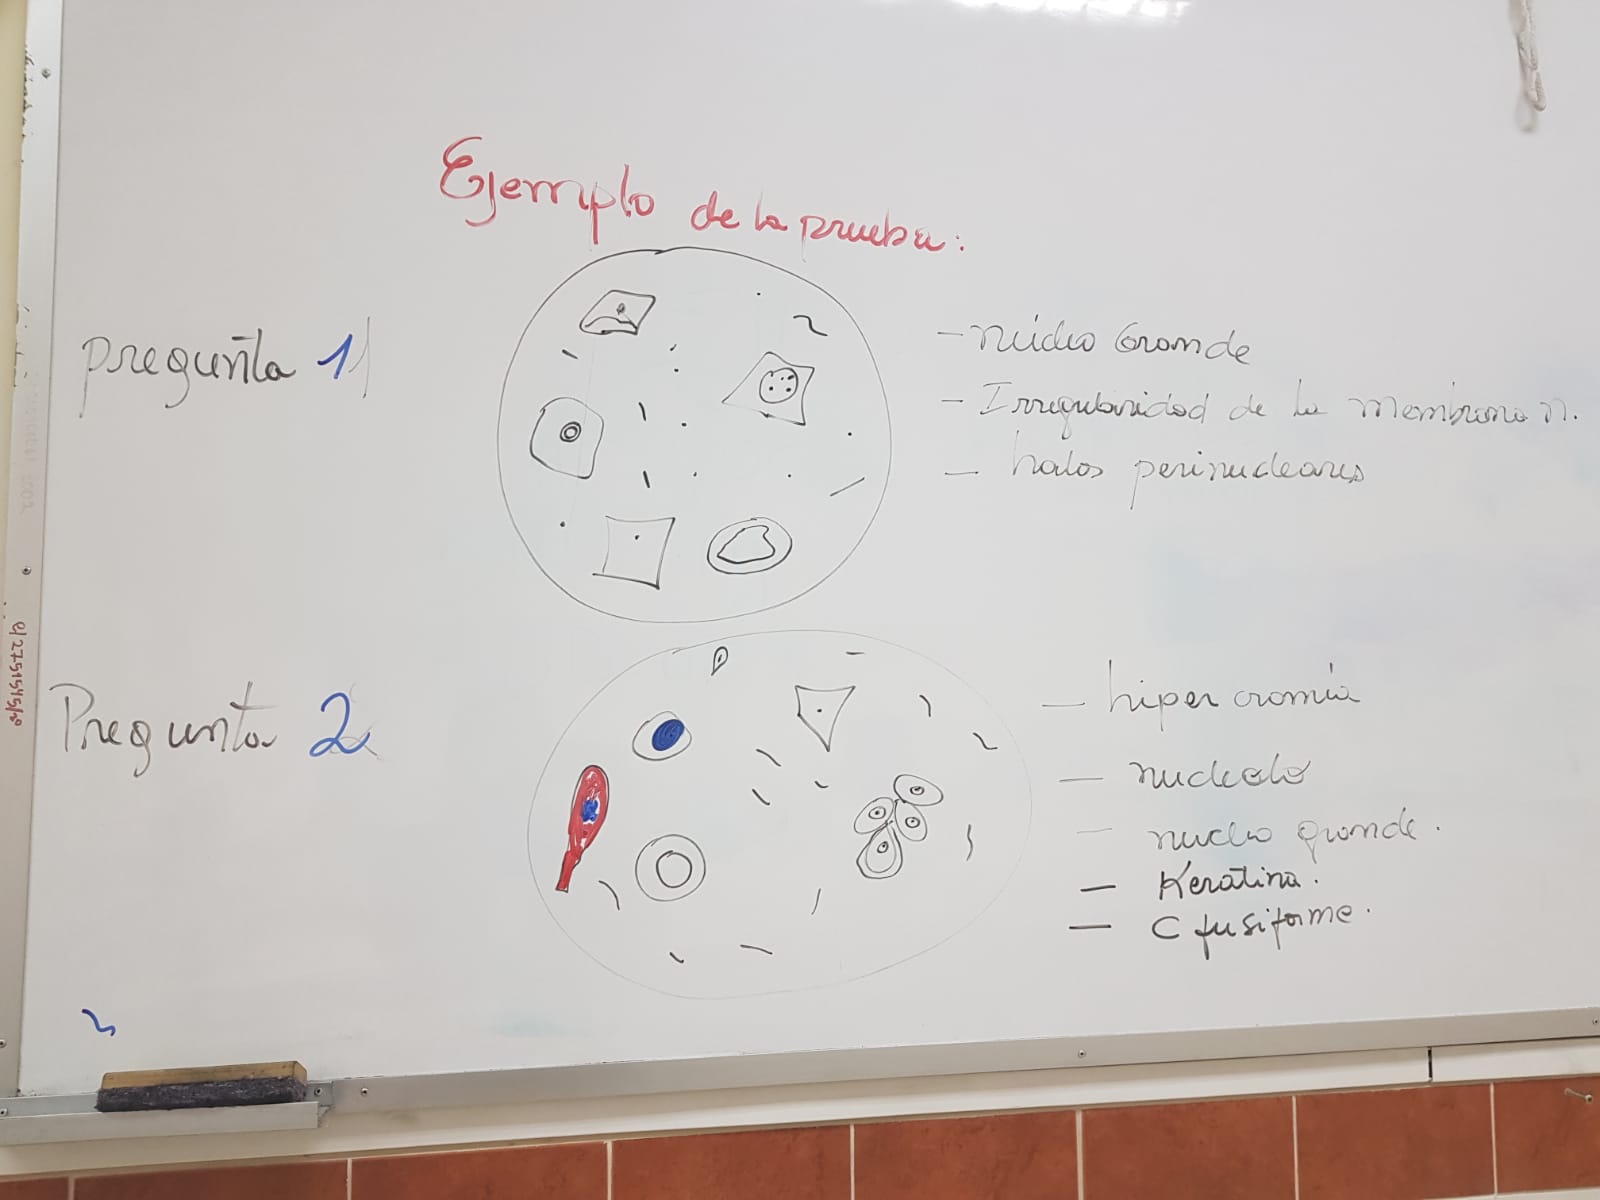 Ejemplo de la prueba:
pregunta 1
- núcleo Grande
- Irregularidad de la membrana n.
- halos perinucleares
Pregunta 2
- hipercromía
- nucleolo
- nucleo grande.
- Keratina.
- C fusiforme.